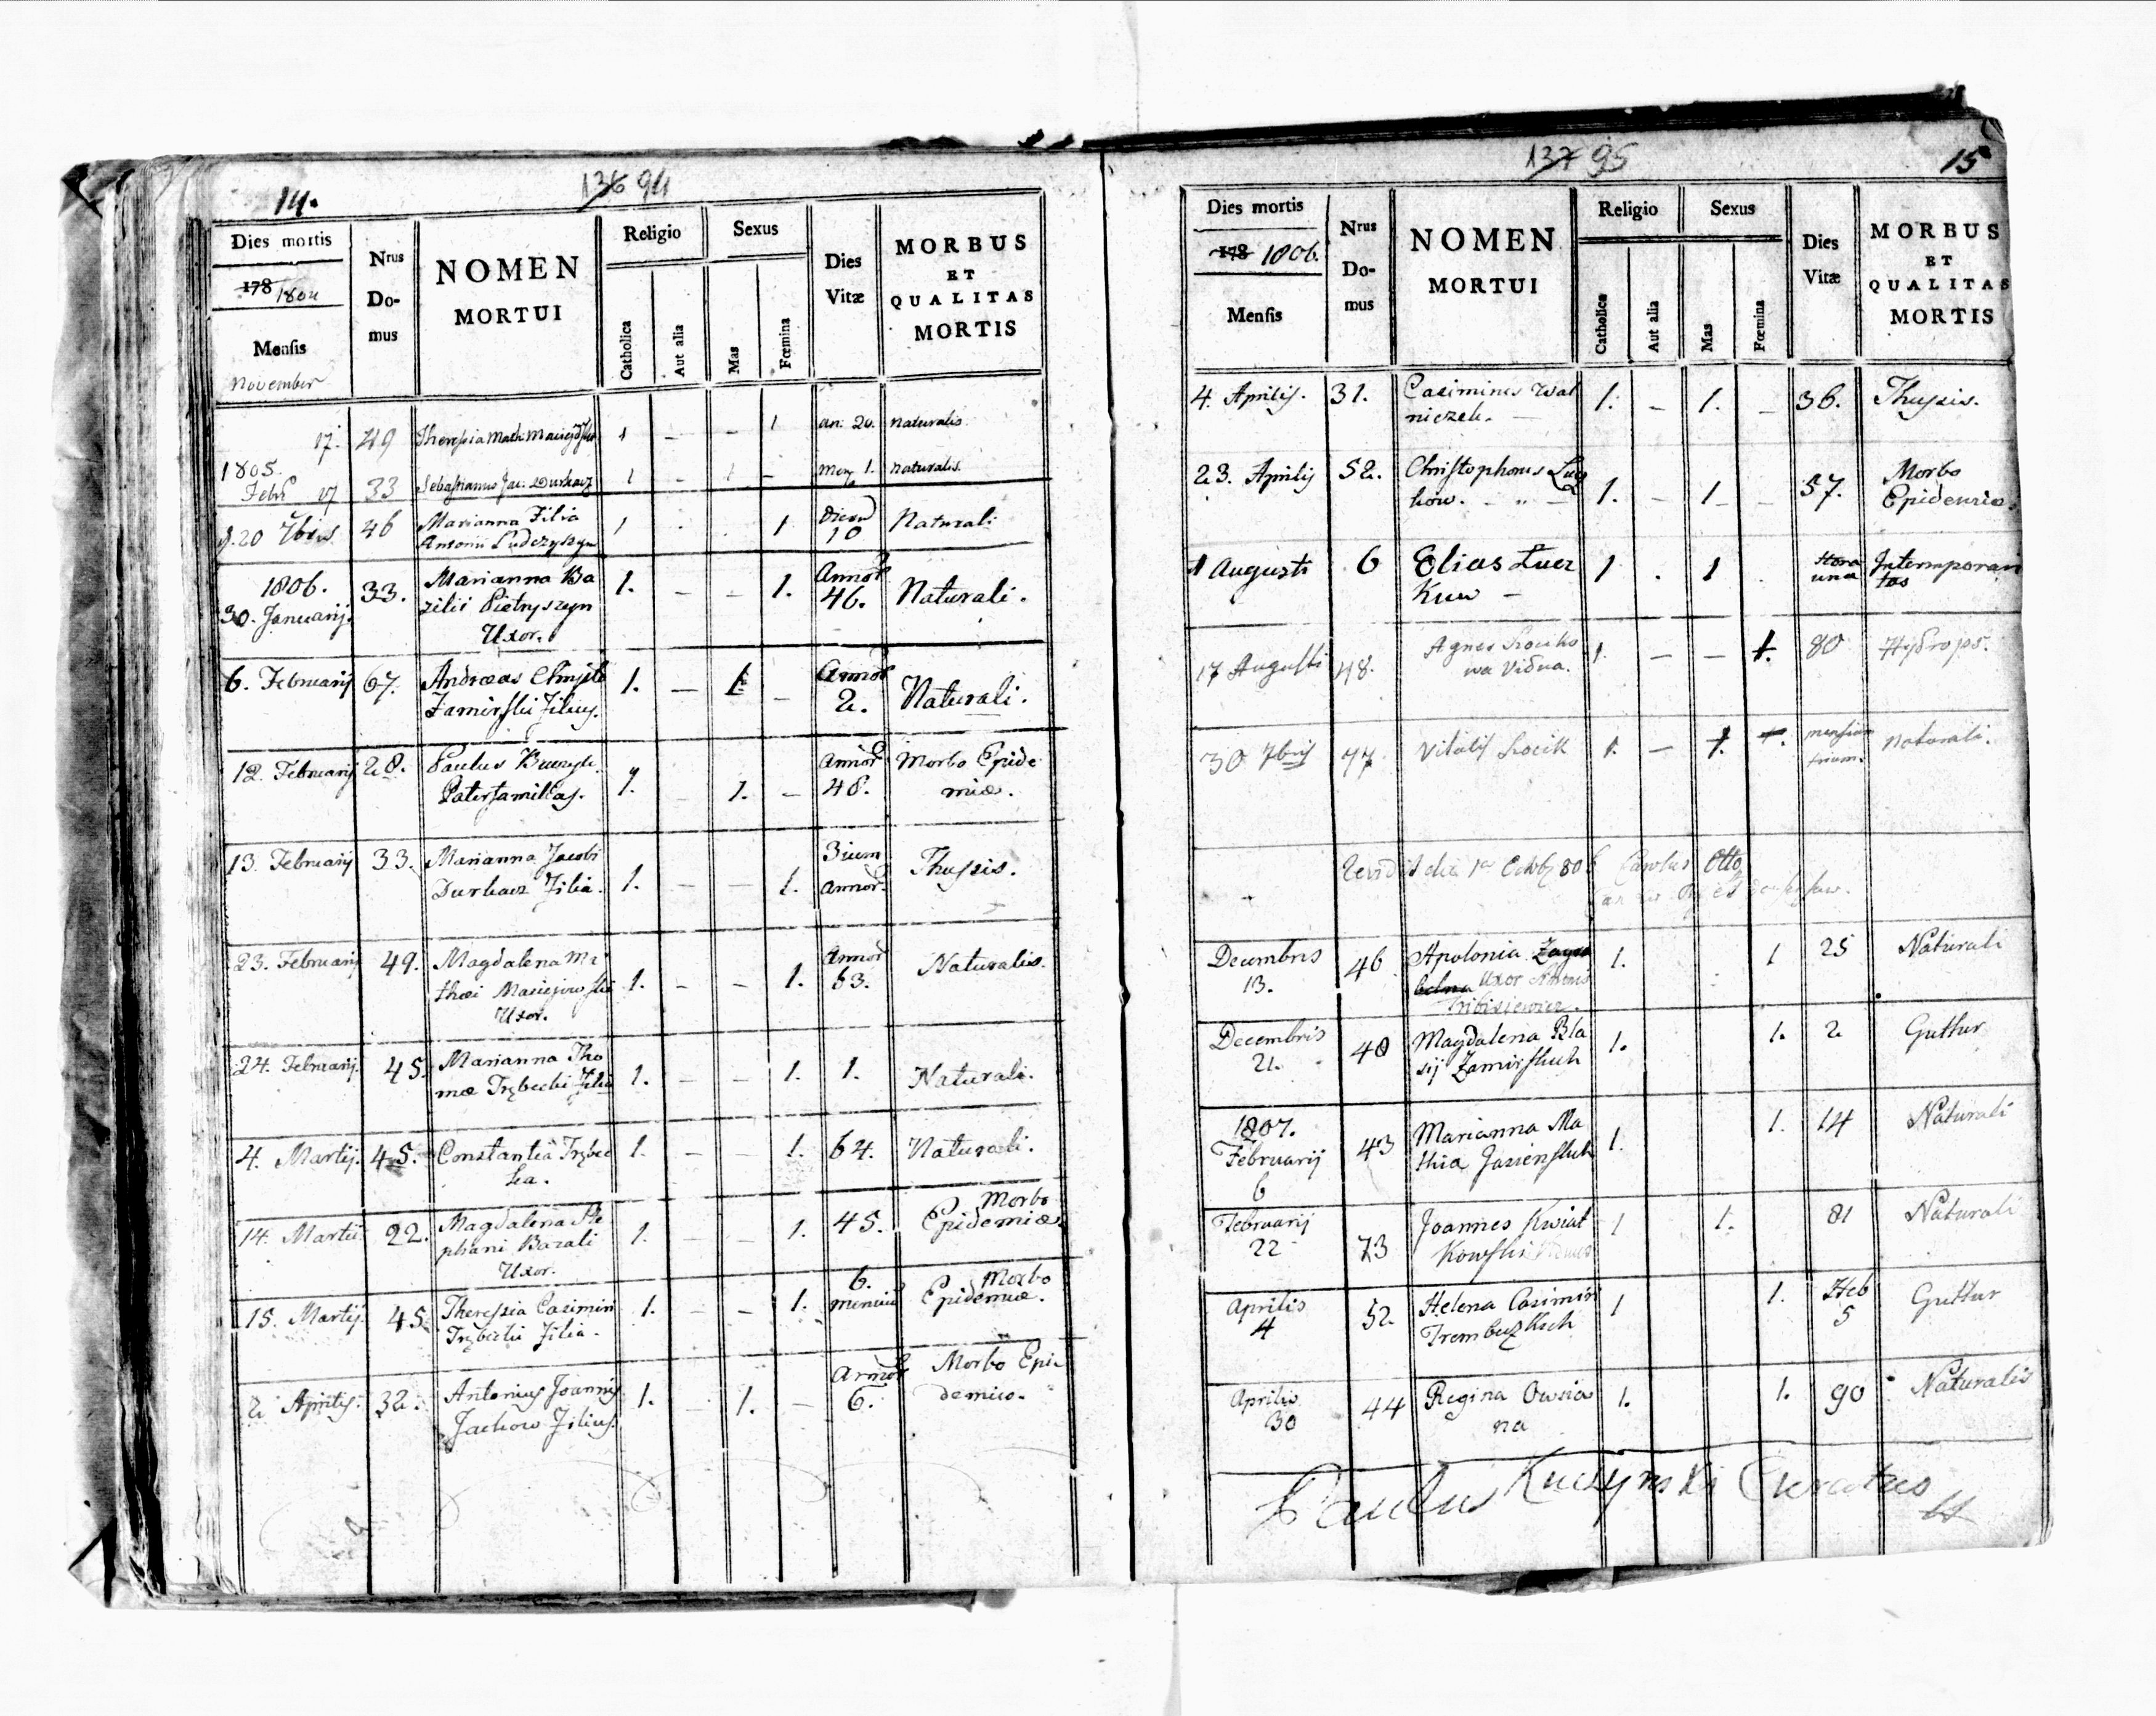 14.
136 94
Dies mortis
178 1804
Mensis
November
Nrus Do-mus
NOMEN
MORTUI
Religio
Catholica
Aut alia
Sexus
Mas
Fœmina
Dies Vitæ
MORBUS
ET
QUALITAS
MORTIS
17. 49 Theresia Math: 1 – – 1 an: 20. naturalis.
1805.
Febr 17 33 Sebastianus Jac: Durkacz 1 – 1 – 1. naturalis.
20 7bris 46 Marianna Filia 1 1 Dierū 10 Naturali
Antonii
1806.
30. Januarij. 33. Marianna Ba 1. – – 1. Annor 46. Naturali.
zilii Pietryszyn
Uxor.
6. Februarij 67. Andreas 1. – 1. – Annor 2. Naturali.
Zamirski Filius.
12. Februarij 28. Paulus 1. – 1. – Annor 48. Morbo Epide
Paterfamilias. miæ.
13. Februarij 33. Marianna Jacobi 1. – – 1. 3ium Annor. Thysis.
Durkacz Filia.
23. Februarij 49. Magdalena Ma 1. – – 1. Annor 63. Naturalis.
thæi Maciejowski
Uxor.
24. Februarij. 45. Marianna Tho 1. – – 1. 1. Naturali.
mæ Trębecki Filia
4. Martij. 45. Constantia Trębec 1. – – 1. 64. Naturali.
ka.
14. Martii 22. Magdalena Ste 1. – – 1. 45. Morbo
phani Barali Epidemiæ
Uxor.
15. Martij. 45. Theressia Casimiri 1. – – 1. 6. Morbo
Trębecki Filia. Epidemiæ.
2 Aprilis. 32. Antonius Joannis 1. – 1. – Annor 6. Morbo Epi
Jachow Filius. demiæ.
137 95
15
Dies mortis
178 1806.
Mensis
Nrus Do-mus
NOMEN
MORTUI
Religio
Catholica
Aut alia
Sexus
Mas
Fœmina
Dies Vitæ
MORBUS
ET
QUALITAS
MORTIS
4. Aprilis. 31. Casimirus Wal 1. – 1. – 36. Thysis.
niczek. –
23. Aprilis 52. Christophorus 1. – 1 – 57. Morbo
Epidemiæ.
1 Augusti 6 Elias 1 . 1 . Hora una Intemporan
tas
17 Augusti 48. Agnes 1. – – 1. 80 Hydrops.
wa Vidua.
30 7bris 77 Vitalis Socik 1. – 1. 1. mensium trium. naturali.
Carolus Otto
Decembris 13. 46 Apolonia 1. 1 25 Naturali
Uxor
Decembris 21. 40 Magdalena Bla 1. 1. 2 Guttur
sij Zamirskich
1807.
Februarij 6 43 Marianna Ma 1. 1. 14 Naturali
thia Jasienskich
Februarij 22 73 Joannes Kwiat 1 1. 81 Naturali
Kowski
Aprilis 4 52. Helena Casimiri 1 1. Heb 5 Guttur
Aprilis 30 44 Regina Owsia 1. 1. 90 Naturalis
na
Paulus Kuczynski Curatus